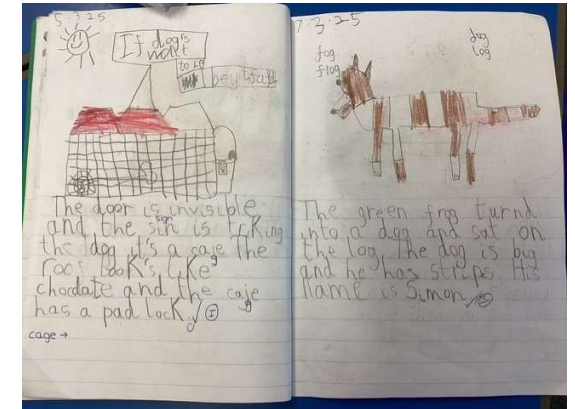 5.3.25
If dog's
want
to be
beytful
The door is invisible
and the sin is triking
sign
the dog it's a caje The
g
roof look's like
chocdate and the caje
g
has a pad lock
cage →
7.3.25
fog
flog
dog
log
The green frog turnd
into a dog and sat on
the log. The dog is big
and he has strips. His
name is Simon